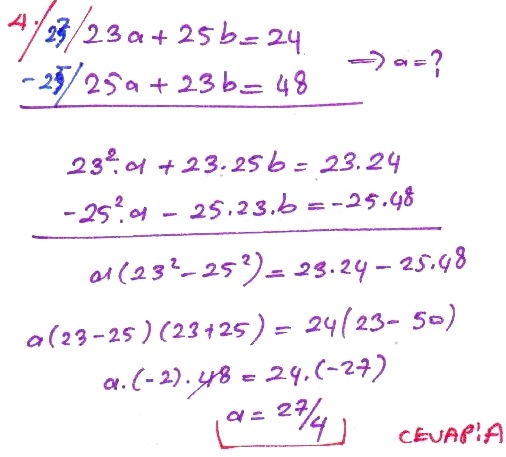 4./ 23/ 23a + 25b = 24
-25/ 25a + 23b = 48 => a = ?
23².a + 23.25b = 23.24
-25².a - 25.23.b = -25.48
a(23² - 25²) = 23.24 - 25.48
a(23-25)(23+25) = 24(23-50)
a.(-2).48 = 24.(-27)
a = 27/4
CEVAP:A